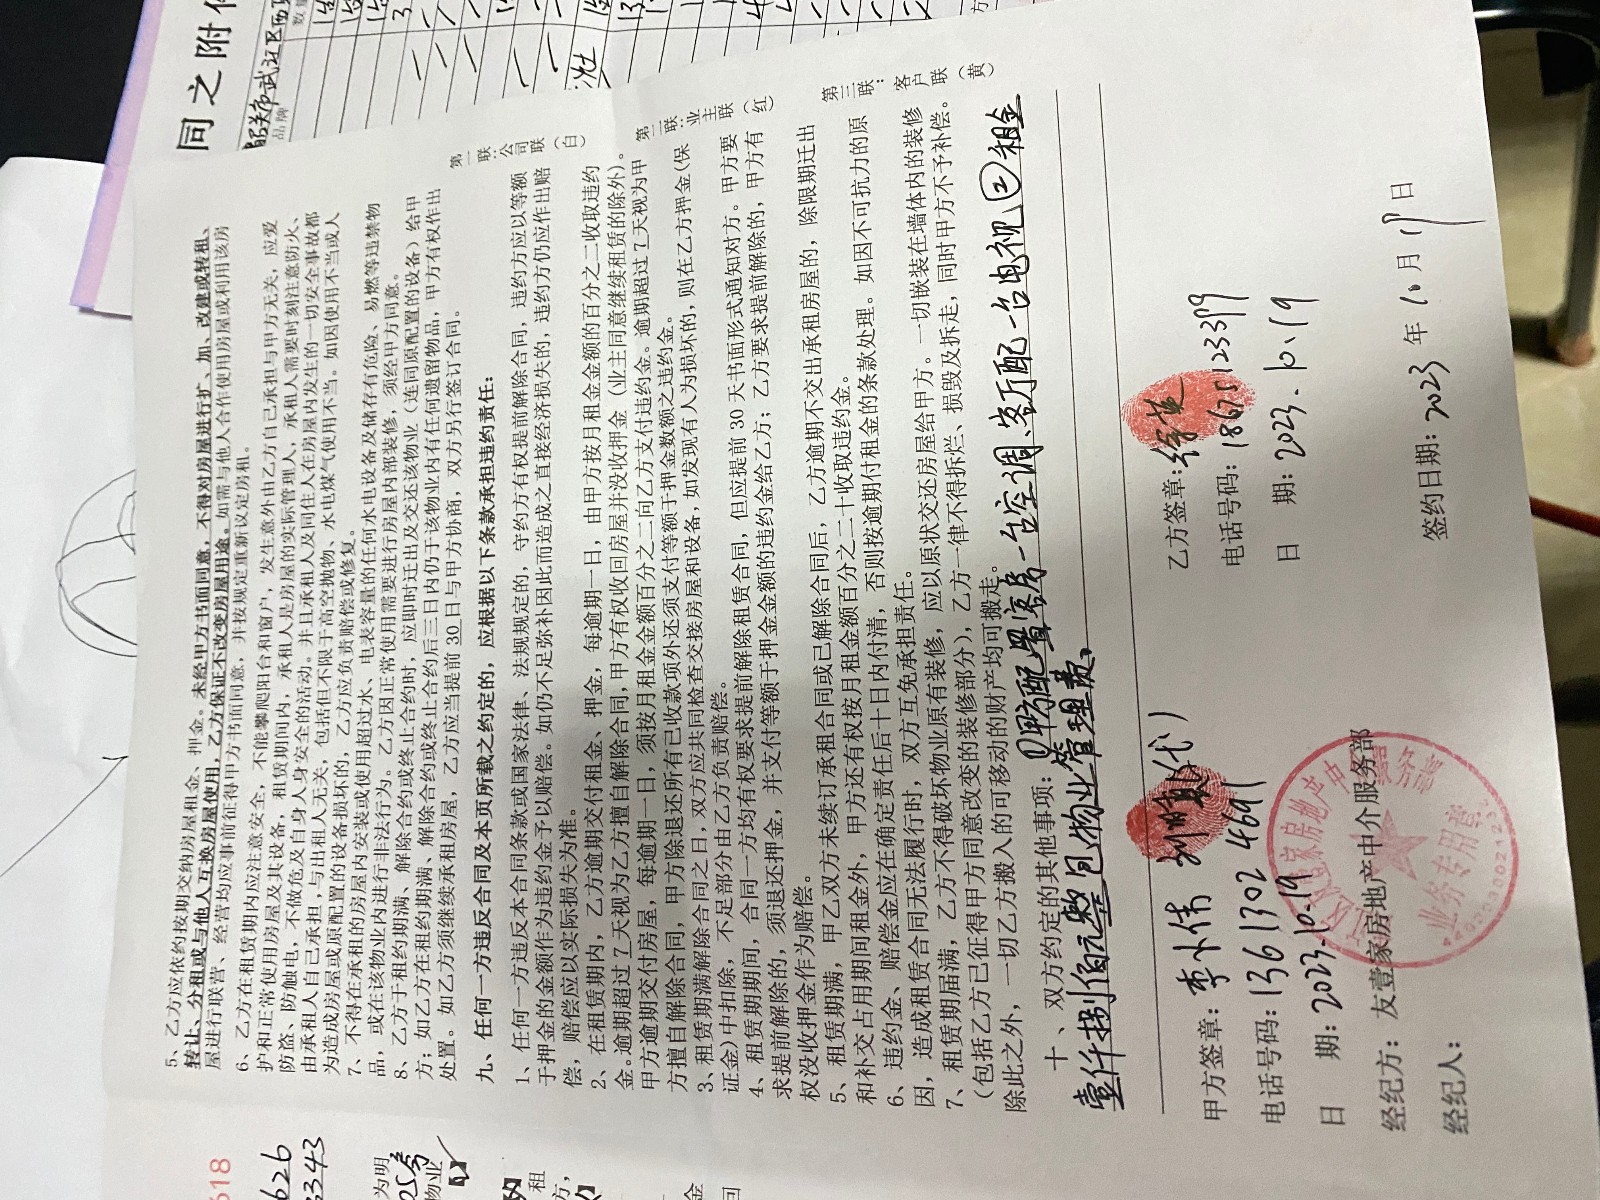 同之附
韶关市武江区西
品牌
618
626
3343
为明
物业
租
方，
金
回
第一联：公司联（白）
第二联：业主联（红）
第三联：客户联（黄）
5、乙方应依约按期交纳房屋租金、押金。未经甲方书面同意，不得对房屋进行扩、加、改建或转租、
转让、分租或与他人互换房屋使用，乙方保证不改变房屋用途。如需与他人合作使用房屋或利用该房
屋进行联营、经营均应事前征得甲方书面同意，并按规定重新议定房租。
6、乙方在租赁期内应注意安全，不能攀爬阳台和窗户，发生意外由乙方自己承担与甲方无关，应爱
护和正常使用房屋及其设备，租赁期间内，承租人是房屋的实际管理人，承租人需要时刻注意防火、
防盗、防触电，不做危及自身人身安全的活动。并且承租人及同住人在房屋内发生的一切安全事故都
由承租人自己承担，与出租人无关，包括但不限于高空抛物、水电煤气使用不当。如因使用不当或人
为造成房屋或原配置的设备损坏的，乙方应负责赔偿或修复。
7、不得在承租的房屋内安装或使用超过水、电表容量的任何水电设备及储存有危险、易燃等违禁物
品，或在该物业内进行非法行为。乙方因正常使用需要进行房屋内部装修，须经甲方同意。
8、乙方于租约期满、解除合约或终止合约时，应即时迁出及交还该物业（连同原配置的设备）给甲
方；如乙方在租约期满、解除合约或终止合约后三日内仍于该物业内有任何遗留物品，甲方有权作出
处置。如乙方须继续承租房屋，乙方应当提前30日与甲方协商，双方另行签订合同。
九、任何一方违反合同及本页所载之约定的，应根据以下条款承担违约责任：
1、任何一方违反本合同条款或国家法律、法规规定的，守约方有权提前解除合同，违约方应以等额
于押金的金额作为违约金予以赔偿。如仍不足弥补因此而造成之直接经济损失的，违约方仍应作出赔
偿，赔偿应以实际损失为准。
2、在租赁期内，乙方逾期交付租金、押金，每逾期一日，由甲方按月租金金额的百分之二收取违约
金。逾期超过7天视为乙方擅自解除合同，甲方有权收回房屋并没收押金（业主同意继续租赁的除外）。
甲方逾期交付房屋，每逾期一日，须按月租金金额百分之二向乙方支付违约金。逾期超过7天视为甲
方擅自解除合同，甲方除退还所有已收款项外还须支付等额于押金数额之违约金。
3、租赁期满解除合同之日，双方应共同检查交接房屋和设备，如发现有人为损坏的，则在乙方押金(保
证金)中扣除，不足部分由乙方负责赔偿。
4、租赁期期间，合同一方均有权要求提前解除租赁合同，但应提前30天书面形式通知对方。甲方要
求提前解除的，须退还押金，并支付等额于押金金额的违约金给乙方；乙方要求提前解除的，甲方有
权没收押金作为赔偿。
5、租赁期满，甲乙双方未续订承租合同或已解除合同后，乙方逾期不交出承租房屋的，除限期迁出
和补交占用期间租金外，甲方还有权按月租金额百分之二十收取违约金。
6、违约金、赔偿金应在确定责任后十日内付清，否则按逾期付租金的条款处理。如因不可抗力的原
因，造成租赁合同无法履行时，双方互免承担责任。
7、租赁期届满，乙方不得破坏物业原有装修，应以原状交还房屋给甲方。一切嵌装在墙体内的装修
（包括乙方已征得甲方同意改变的装修部分），乙方一律不得拆烂、损毁及拆走，同时甲方不予补偿。
除此之外，一切乙方搬入的可移动的财产均可搬走。
十、双方约定的其他事项：①甲方配置客房一台空调、客厅配一台电视②租金
壹仟捌佰元整包物业管理费。
甲方签章：李小伟 （代）
电话号码：13613024691
日 期：2023.10.19
经纪方：友壹家房地产中介服务部
经纪人：
乙方签章：
电话号码：18675123399
日 期：2023.10.19
签约日期：2023 年 10 月 19 日
业务专用章